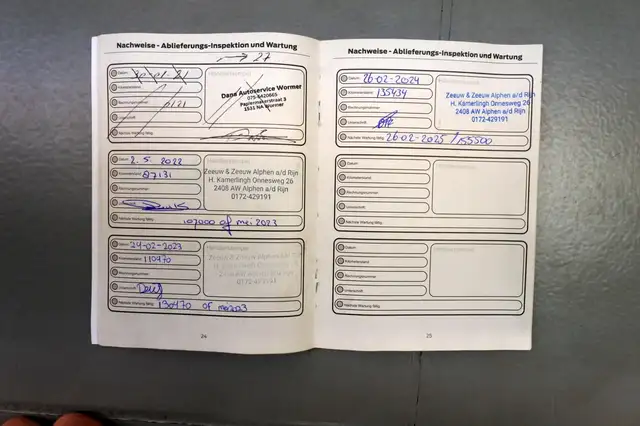 Nachweise - Ablieferungs-Inspektion und Wartung
→ 27
Datum
Kilometerstand
Rechnungsnummer
Unterschrift
Nächste Wartung fällig
Dane Autoservice Wormer
075-6420865
Papiermakerstraat 3
1531 NA Wormer
Datum 2.5.2022
Kilometerstand 87131
Rechnungsnummer
Unterschrift
Nächste Wartung fällig 107000 of mei 2023
Zeeuw & Zeeuw Alphen a/d Rijn
H. Kamerlingh Onnesweg 26
2408 AW Alphen a/d Rijn
0172-429191
Datum 24-02-2023
Kilometerstand 110470
Rechnungsnummer
Unterschrift
Nächste Wartung fällig 130470 of
Zeeuw & Zeeuw Alphen a/d Rijn
24
Nachweise - Ablieferungs-Inspektion und Wartung
Datum 26-02-2024
Kilometerstand 135434
Rechnungsnummer
Unterschrift
Nächste Wartung fällig 26-02-2025 / 155500
Zeeuw & Zeeuw Alphen a/d Rijn
H. Kamerlingh Onnesweg 26
2408 AW Alphen a/d Rijn
0172-429191
Datum
Kilometerstand
Rechnungsnummer
Unterschrift
Nächste Wartung fällig
Datum
Kilometerstand
Rechnungsnummer
Unterschrift
Nächste Wartung fällig
25